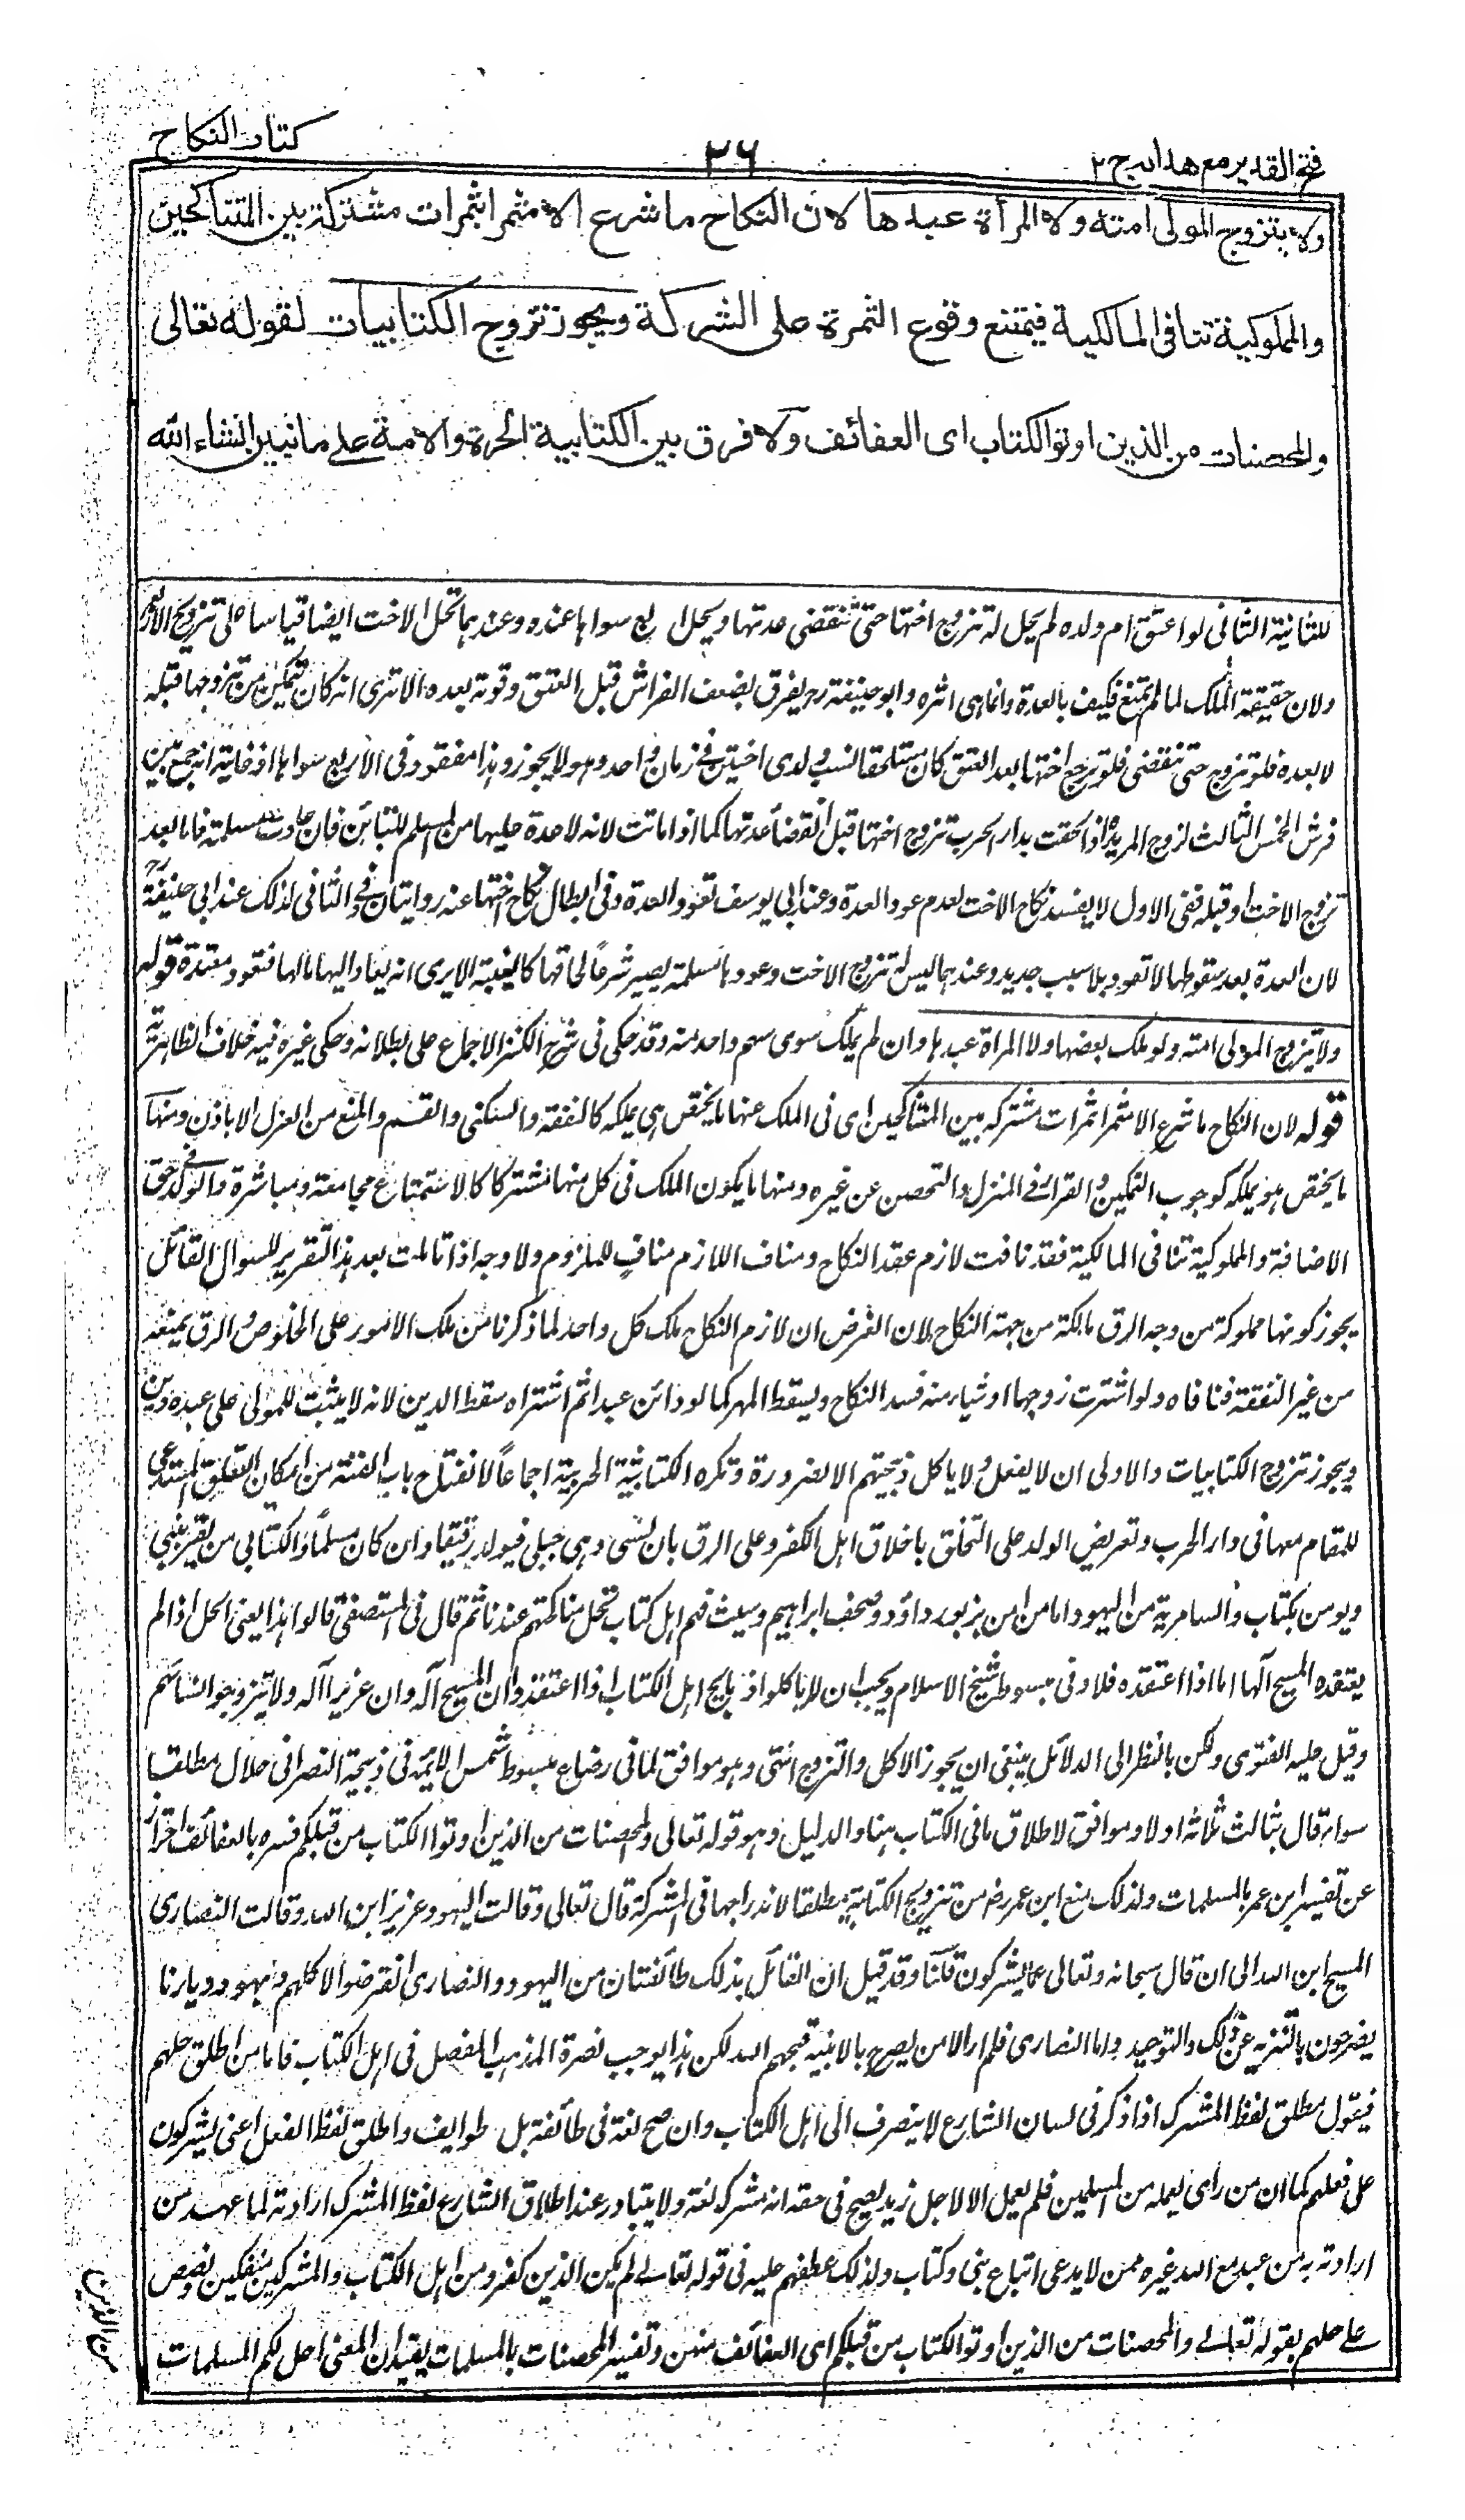 فتح القدير مع هدايه ج ٢
٣٦
كتاب النكاح
ولا يتزوج المولى امته ولا المرأة عبدها لان النكاح ما شرع الا مثمرا ثمرات مشتركة بين المتناكحين
والمملوكية تنافى المالكية فيمتنع وقوع الثمرة على الشركة ويجوز تزوج الكتابيات لقوله تعالى
والمحصنات من الذين اوتوا الكتاب اى العفائف ولا فرق بين الكتابية الحرة والامة على ما نبين انشاء الله
للثانية الثانى لو اعتق ام ولده لم يحل له تزوج اختها حتى تنقضى عدتها ويحل اربع سواها عنده وعندهما تحل الاخت ايضا قياسا على تزوج الاربع
ولان حقيقة الملك لما لم تمنع فكيف بالعدة وانما هى اثره وابو حنيفة رح يفرق بضعف الفراش قبل العتق وقوته بعده الا ترى انه كان يتمكن من تزوجها قبله
لا بعده فلو تزوج حتى تنقضى فلو تزوج اختها بعد العتق كان مستلحقا نسب ولدى اختين فى زمان واحد وهو لا يجوز وهذا مفقود فى الاربع سواها اذ غايته انه جمع بين
فرش الخمس الثالث لزوج المرتدة اذا لحقت بدار الحرب تزوج اختها قبل انقضاء عدتها كما اذا ماتت لانه لا عدة عليها من المسلم للتباين فان عادت مسلمة فاما بعد
تزوج الاخت او قبله ففى الاول لا يفسد نكاح الاخت لعدم عود العدة وعند ابى يوسف تعود العدة وفى ابطال نكاح اختها عنه روايتان وفى الثانى لذلك عند ابى حنيفة رح
لان العدة بعد سقوطها لا تعود بلا سبب جديد وعندهما ليس له تزوج الاخت وعودها مسلمة يصير شرعًا لحاقها كالغيبة الا يرى انه يعاد اليها مالها فتعود معتدة قوله
ولا يتزوج المولى امته ولو ملك بعضها ولا المراة عبدها وان لم يملك سوى سهم واحد منه وقد حكى فى شرح الكنز الاجماع على بطلانه وحكى غيره فيه خلاف الظاهرية
قوله لان النكاح ما شرع الا مثمرا ثمرات مشتركه بين المتناكحين اى فى الملك عنها ما يختص هى بملكه كالنفقة والسكنى والقسم والمنع من العزل الا باذن ومنها
ما يختص هو بملكه كوجوب التمكين والقرار فى المنزل والتحصن عن غيره ومنها ما يكون الملك فى كل منها مشتركا كالاستمتاع مجامعة ومباشرة والولد فى حق
الاضافة والمملوكية تنافى المالكية فقد نافت لازم عقد النكاح ومناف اللازم مناف للملزوم ولا وجه اذا تاملت بعد هذا التقرير للسوال القائل
يجوز كونها مملوكة من وجه الرق مالكة من جهة النكاح لان الفرض ان لازم النكاح ملك كل واحد لما ذكرنا من ملك الامور على الخلوص والرق يمنعه
من غير النفقة فنافاه ولو اشترت زوجها او شيا منه فسد النكاح ويسقط المهر كما لو داين عبدا ثم اشتراه سقط الدين لانه لا يثبت للمولى على عبده دين
ويجوز تزوج الكتابيات والاولى ان لا يفعل ولا ياكل ذبيحتهم الا لضرورة وتكره الكتابية الحربية اجماعًا لانفتاح باب الفتنة من امكان التعلق المستدعى
للمقام معها فى دار الحرب وتعريض الولد على التخلق باخلاق اهل الكفر وعلى الرق بان تسبى وهى حبلى فيولد رقيقا وان كان مسلمًا والكتابى من يقر بنبى
ويومن بكتاب والسامرية من اليهود اما من امن بزبور داؤد وصحف ابراهيم وشيث فهم اهل كتاب تحل مناكحتهم عندنا ثم قال فى المستصفى قالوا هذا يعنى الحل اذا لم
يعتقده المسيح آلها اما اذا اعتقده فلا وفى مبسوط شيخ الاسلام ويجب ان لا ياكلوا ذبايح اهل الكتاب اذا اعتقدوا ان المسيح آله وان عزيرا آله ولا يتزوجوا نساءهم
وقيل عليه الفتوى ولكن بالنظر الى الدلائل ينبغى ان يجوز الاكل والتزوج انتهى وهو موافق لما فى رضاع مبسوط شمس الائمه فى ذبيحة النصرانى حلال مطلقا
سواء قال بثالث ثلاثة اولا وموافق لاطلاق ما فى الكتاب هنا والدليل وهو قوله تعالى والمحصنات من الذين اوتوا الكتاب من قبلكم فسره بالعفائف احترازا
عن تفسير ابن عمر بالمسلمات ولذلك منع ابن عمر رض من تزوج الكتابية مطلقا لاندراجها فى المشركة قال تعالى وقالت اليهود عزير ابن الله وقالت النصارى
المسيح ابن الله الى ان قال سبحانه وتعالى عما يشركون قلنا وقد قيل ان القائل بذلك طائفتان من اليهود والنصارى انقرضوا لا كلهم ويهود ديارنا
يصرحون بالتنزيه عن ذلك والتوحيد واما النصارى فلم ار الا من يصرح بالابنية قبحهم الله لكن هذا يوجب نصرة المذهب المفصل فى اهل الكتاب فاما من اطلق حلهم
فيقول مطلق لفظ المشرك اذا ذكر فى لسان الشارع لا ينصرف الى اهل الكتاب وان صح لغة فى طائفة بل طوايف واطلق لفظ الفعل اعنى يشركون
على فعلهم كما ان من رأى بعمله من المسلمين فلم يعمل الا لاجل زيد يصح فى حقه انه مشرك لغة ولا يتبادر عند اطلاق الشارع لفظ المشرك ارادته لما عهد من
ارادته به من عبد مع الله غيره ممن لا يدعى اتباع نبى وكتاب ولذلك عطفهم عليه فى قوله تعالى لم يكن الذين كفروا من اهل الكتاب والمشركين منفكين ونص
على حلهم بقوله تعالى والمحصنات من الذين اوتوا الكتاب من قبلكم اى العفائف منهن وتفسير المحصنات بالمسلمات يفيد ان المعنى احل لكم المسلمات
من الذين